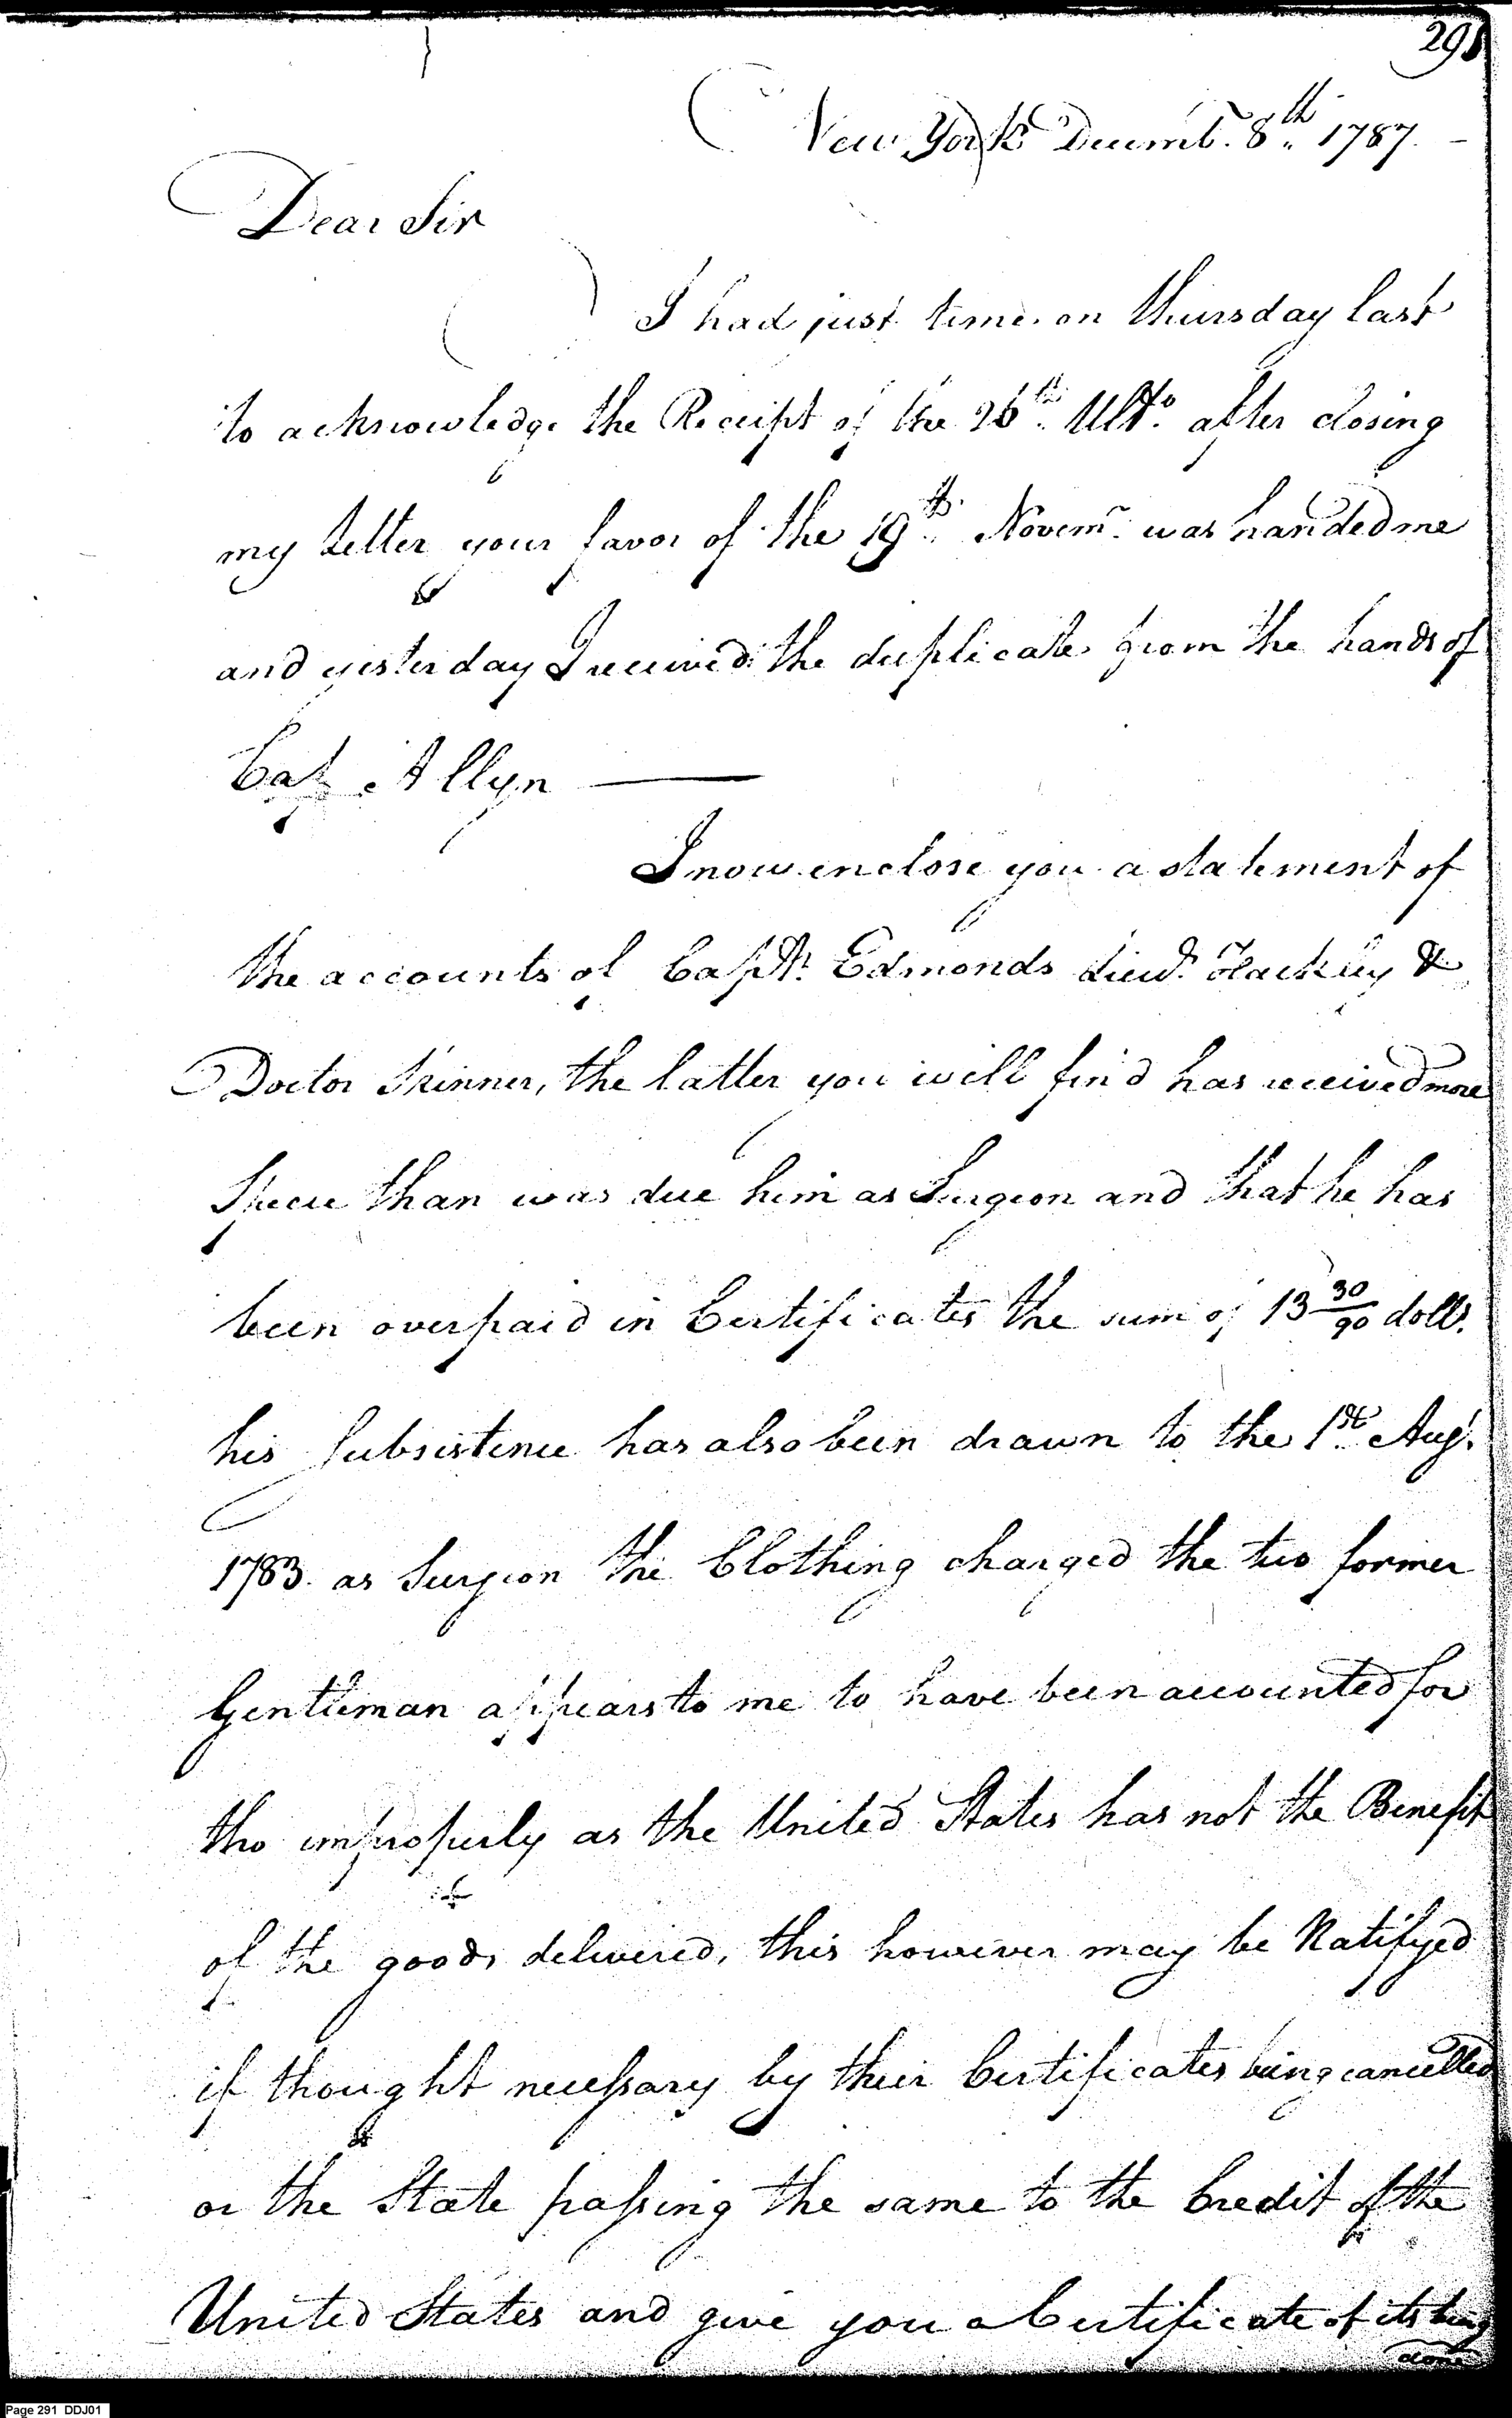 291
New York Decemb. 8th 1787.
Dear Sir
I had just time on thursday last
to acknowledge the Receipt of the 26th Ulto. after closing
my Letter your favor of the 19th Novemr. was handed me
and yesterday I received the duplicate from the hands of
Cap Allyn
I now enclose you a statement of
the accounts of Capt. Edmonds Lieut. Hackley &
Doctor Skinner, the latter you will find has received more
Specie than was due him as Surgeon and that he has
been overpaid in Certificates the sum of 13 30/90 dolls.
his Subsistence has also been drawn to the 1st Augt.
1783. as Surgeon the Clothing charged the two former
Gentleman appears to me to have been accounted for
tho improperly as the United States has not the Benefit
of the goods delivered, this however may be Ratifyed
if thought necessary by their Certificates being cancelled
or the State passing the same to the Credit of the
United States and give you a Certificate of its being
done
Page 291 DDJ01